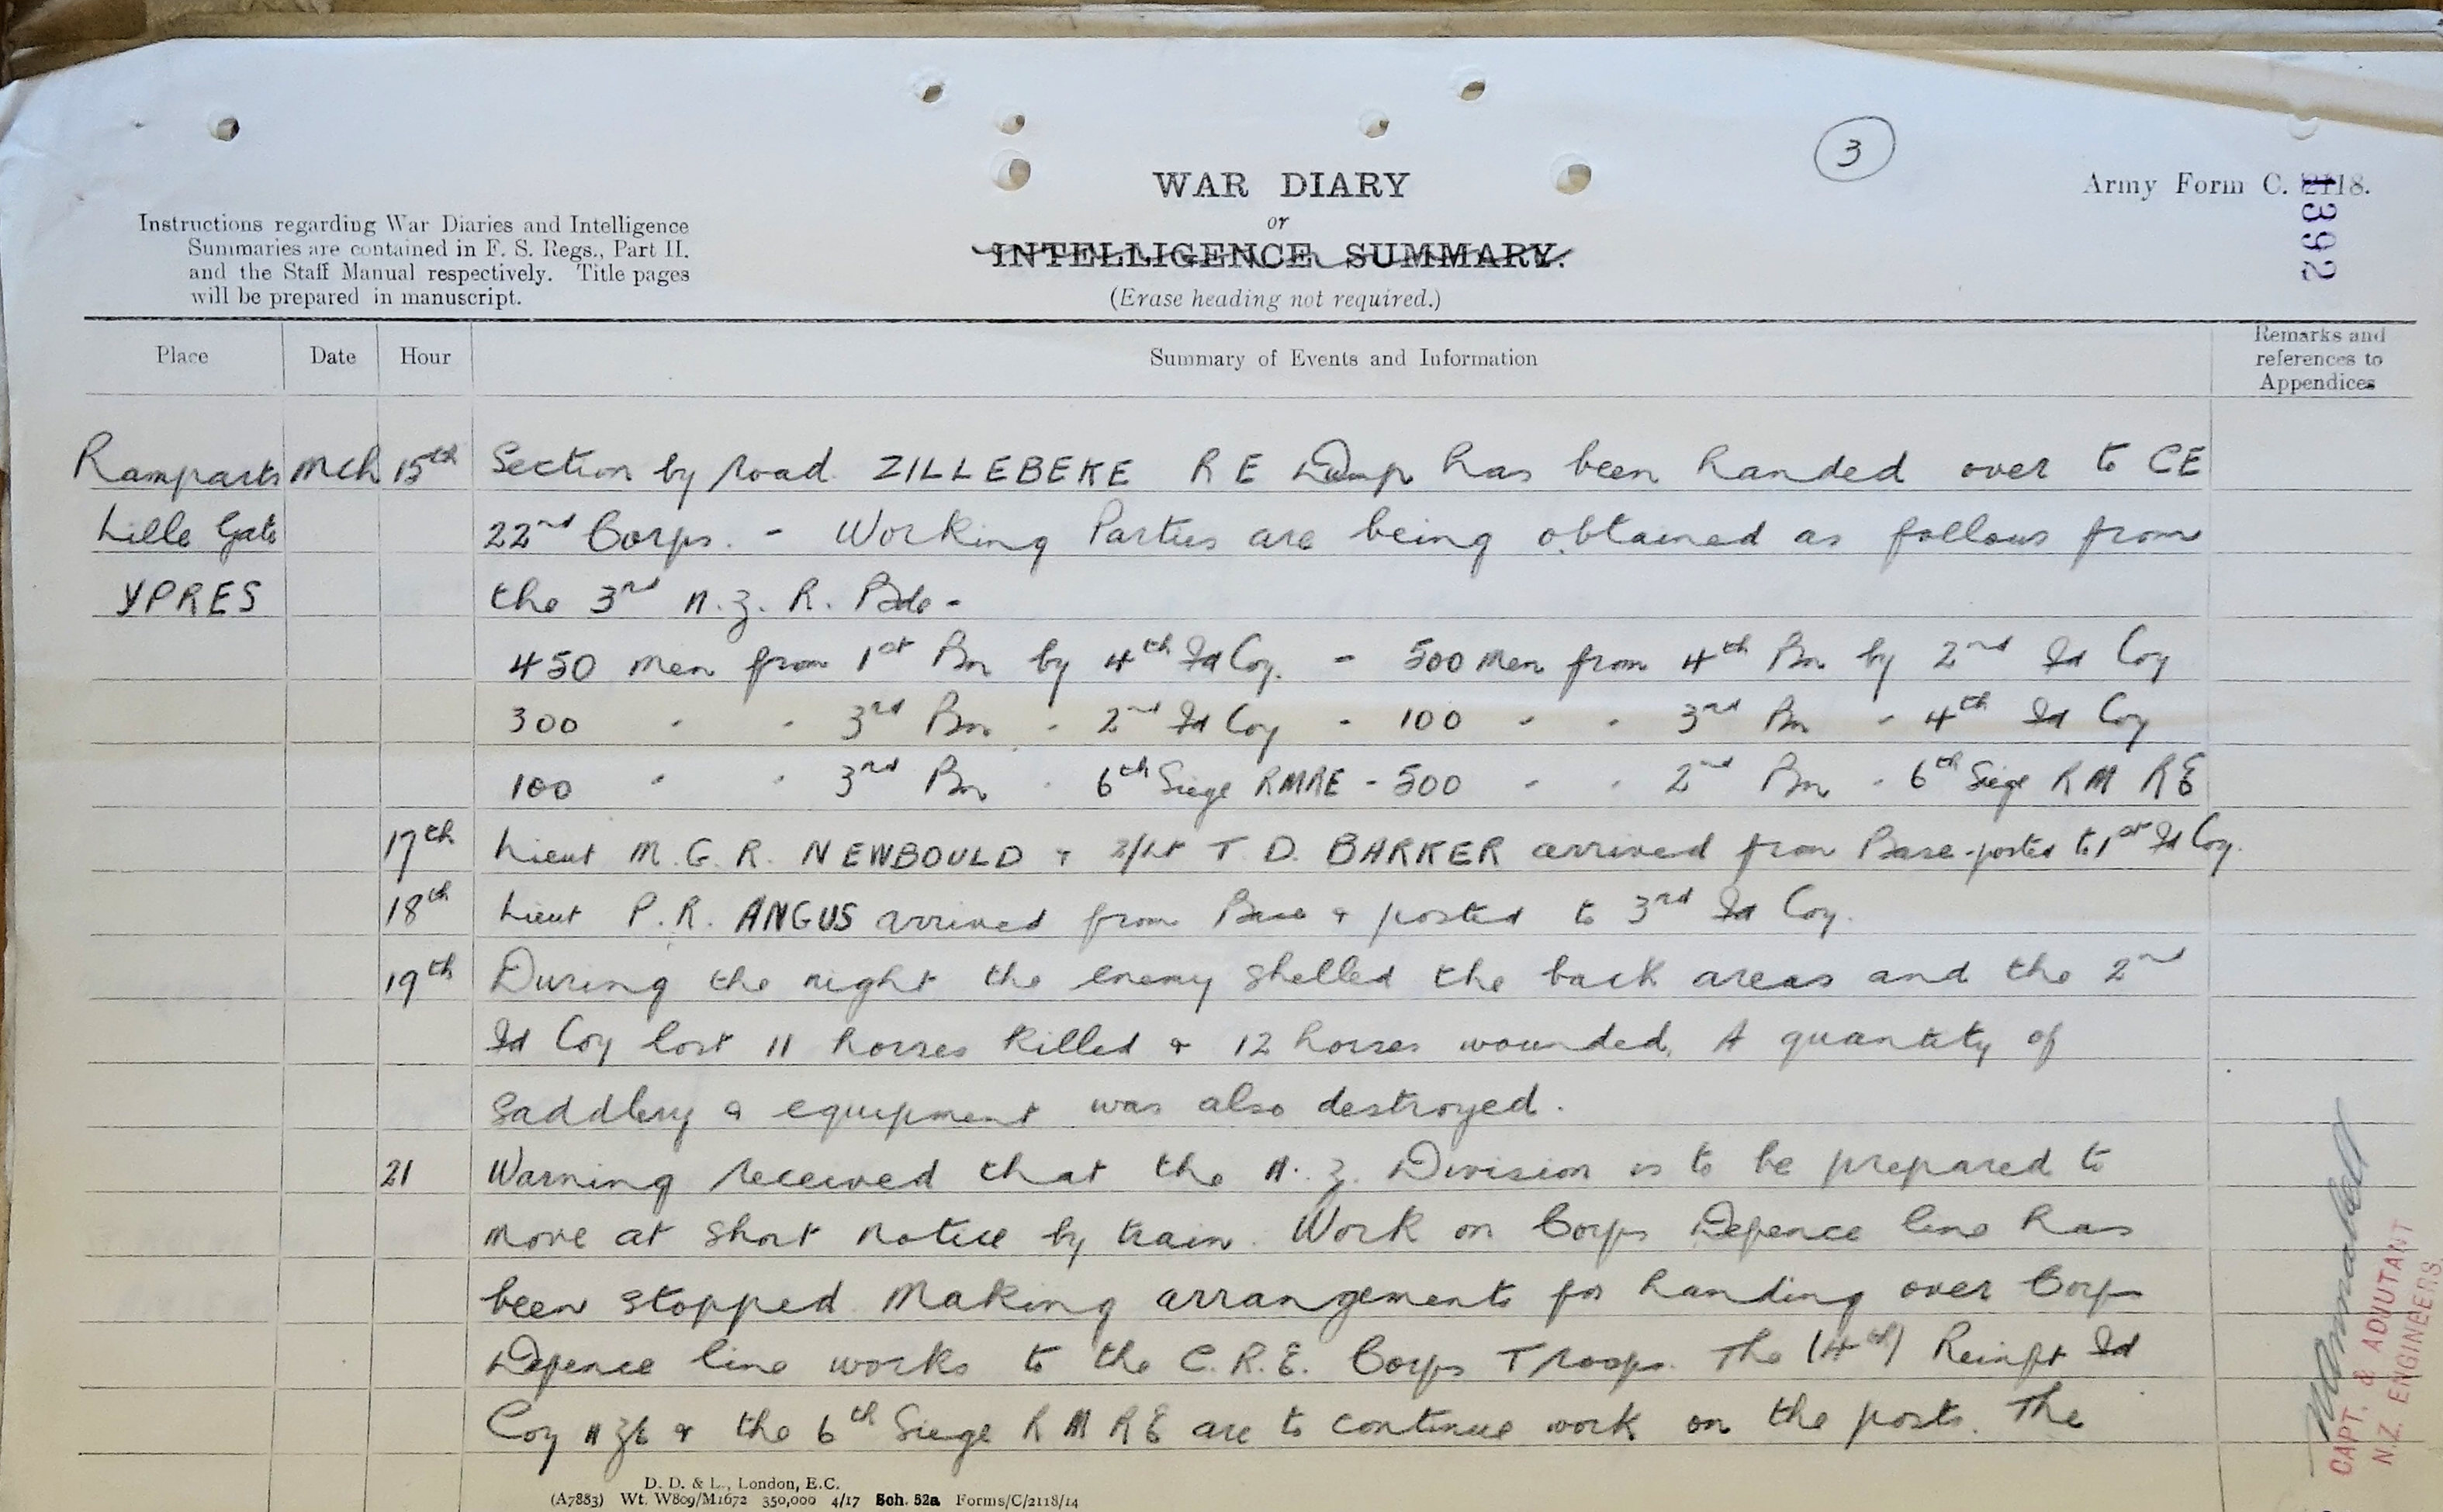 3
WAR DIARY
or
INTELLIGENCE SUMMARY.
(Erase heading not required.)
Army Form C. 2118.
1392
Instructions regarding War Diaries and Intelligence
Summaries are contained in F. S. Regs., Part II.
and the Staff Manual respectively. Title pages
will be prepared in manuscript.
Place Date Hour Summary of Events and Information Remarks and
references to
Appendices
Ramparts Mch 15th Section by road. ZILLEBEKE R E Dump has been handed over to CE
Lille Gate 22nd Corps. - Working Parties are being obtained as follows from
YPRES the 3rd N.Z. R. Bde -
450 men from 1st Bn by 4th Fd Coy. - 500 men from 4th Bn by 2nd Fd Coy
300 " " 3rd Bn " 2nd Fd Coy - 100 " " 3rd Bn " 4th Fd Coy
100 " " 3rd Bn " 6th Siege RMRE - 500 " " 2nd Bn " 6th Siege R M R E
17th Lieut M. G. R. NEWBOULD & 2/Lt T. D. BARKER arrived from Base - posted to 1st Fd Coy.
18th Lieut P. R. ANGUS arrived from Base & posted to 3rd Fd Coy.
19th During the night the enemy shelled the back areas and the 2nd
Fd Coy lost 11 horses killed & 12 horses wounded. A quantity of
saddlery & equipment was also destroyed.
21 Warning received that the N.Z. Division is to be prepared to
move at short notice by train. Work on Corps Defence line has
been stopped. Making arrangements for handing over Corps
Defence line works to the C.R.E. Corps Troops. The (4th) Reinft Fd
Coy NZE & the 6th Siege R M R E are to continue work on the posts. The
CAPT. & ADJUTANT
N.Z. ENGINEERS.
D. D. & L., London, E.C.
(A7883) Wt. W809/M1672 350,000 4/17 Sch. 52a Forms/C/2118/14